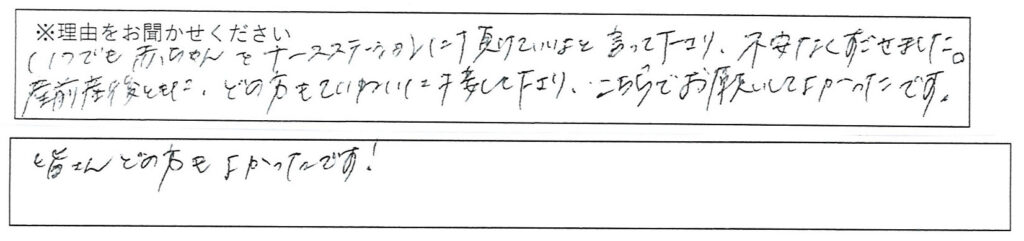 ※理由をお聞かせください
いつでも赤ちゃんをナースステーションに預けていいよと言って下さり、不安なくすごせました。
産前産後ともに、どの方もていねいに接して下さり、こちらでお願いしてよかったです。
皆さんどの方もよかったです！